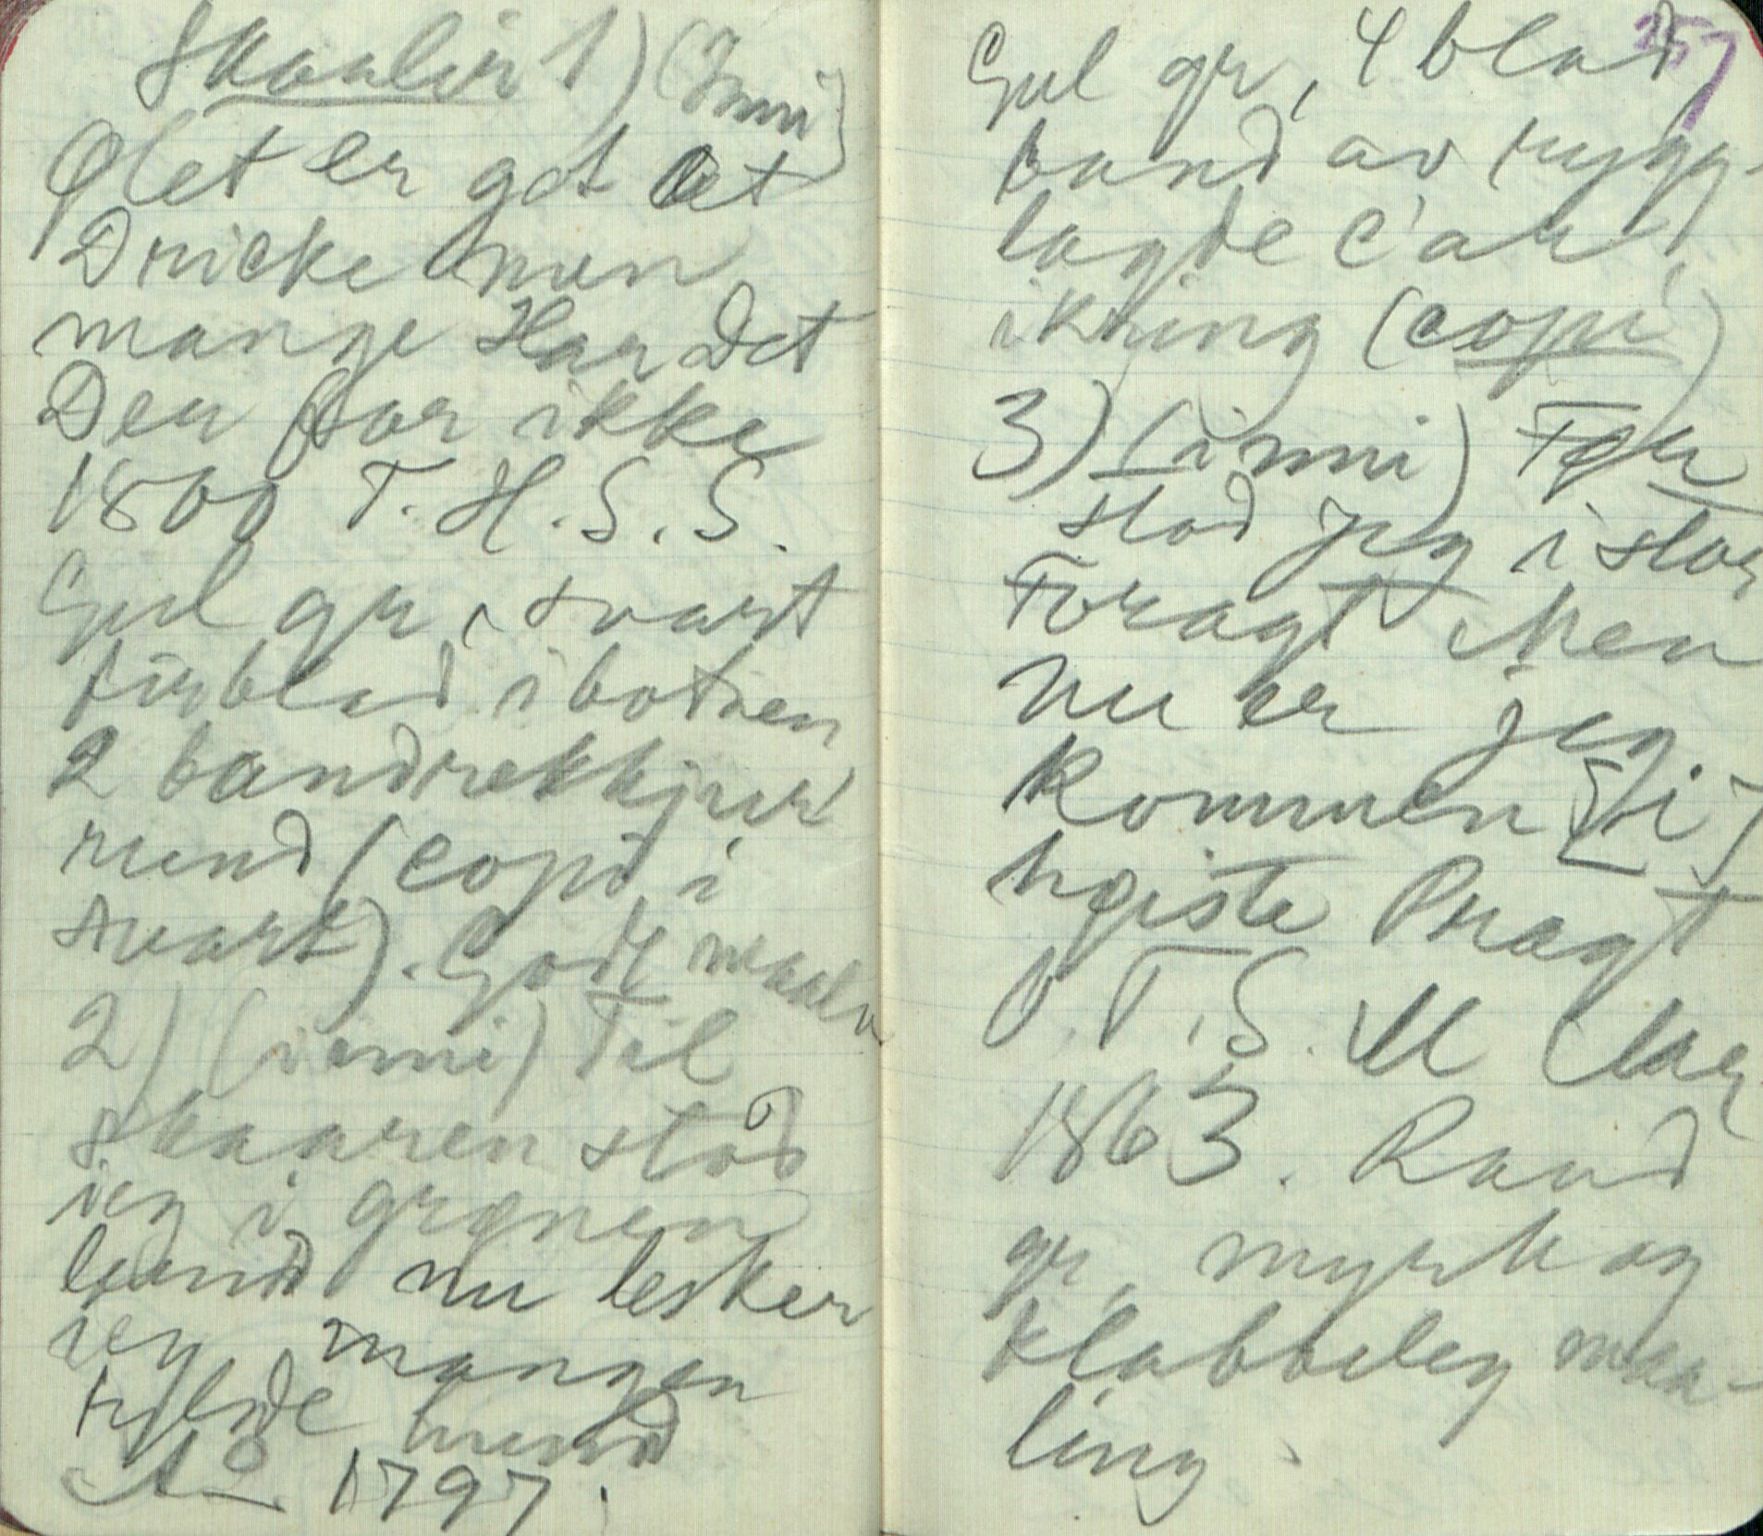 Skaaler 1) (Inni)
Ølet er got at
Dricke men
mange Har det
Der for ikke
1800 T. H. S. S.
Gul gr, svart
firblad i botnen
2 bandrekkjur
rund (copi i
svart). Godt maala
2) (inni) Til
skaaren stod
ieg i grønen
lund nu lesker
ieg mangen
tylde mund
Aº 1797.
257
Gul gr, 4 blad
band av rygg-
lagde c'ar
ikring (copi)
3) (inni) Før
stod jeg i stor
Foragt Men
nu er jeg
kommen [i]
høiste Pragt
O. T. S. M
1863. Raud
gr, myrk og
klabbeleg maa-
ling.